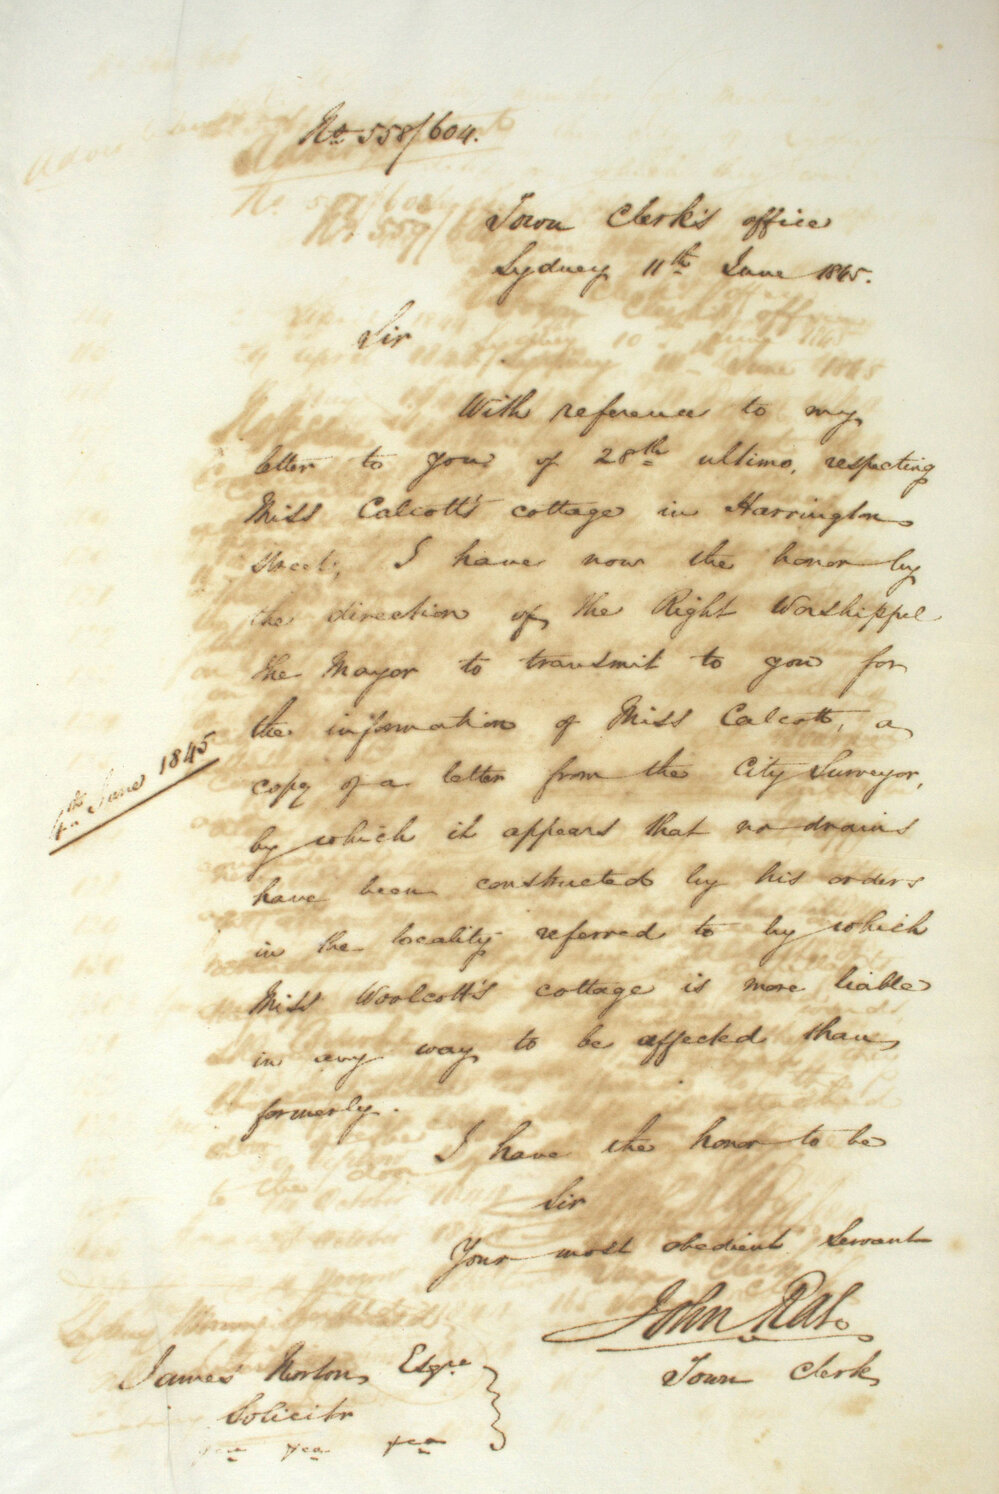 No. 558/604.
Town Clerk's office
Sydney 11th June 1845.
Sir
With reference to my
letter to you of 28th ultimo, respecting
Miss Calcott's cottage in Harrington
street, I have now the honor by
the direction of the Right Worshipful
the Mayor to transmit to you for
the information of Miss Calcott, a
4th June 1845
copy of a letter from the City Surveyor,
by which it appears that no drains
have been constructed by his orders
in the locality referred to by which
Miss Woolcott's cottage is more liable
in any way to be affected than
formerly.
I have the honor to be
Sir
Your most obedient Servant
John Rae
Town Clerk
James Norton Esqre
Solicitr
&ca &ca &ca